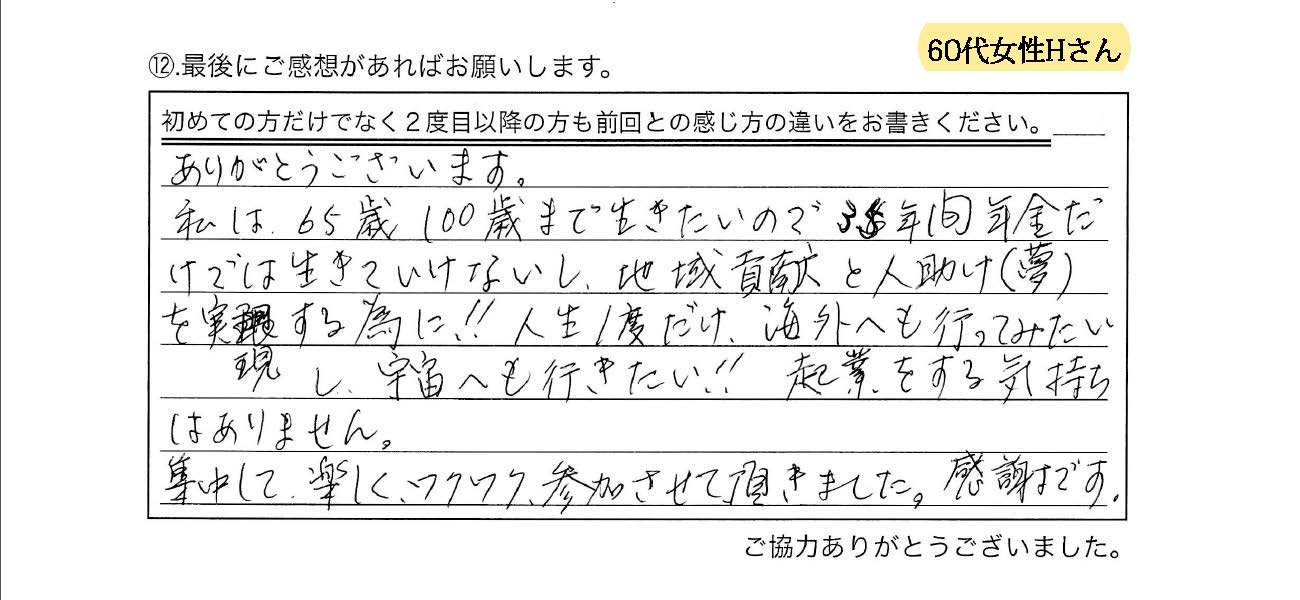 60代女性Hさん
⑫.最後にご感想があればお願いします。
初めての方だけでなく2度目以降の方も前回との感じ方の違いをお書きください。
ありがとうございます。
私は、65歳、100歳まで生きたいので35年間年金だ
けでは生きていけないし、地域貢献と人助け(夢)
を実現する為に!!人生1度だけ、海外へも行ってみたい
現 し、宇宙へも行きたい!! 起業をする気持ち
はありません。
集中して、楽しく、ワクワク、参加させて頂きました。感謝です。
ご協力ありがとうございました。